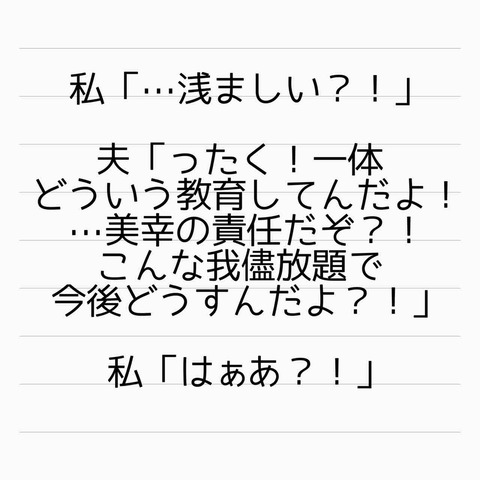 私「…浅ましい？！」
夫「ったく！一体
どういう教育してんだよ！
…美幸の責任だぞ？！
こんな我儘放題で
今後どうすんだよ？！」
私「はぁあ？！」